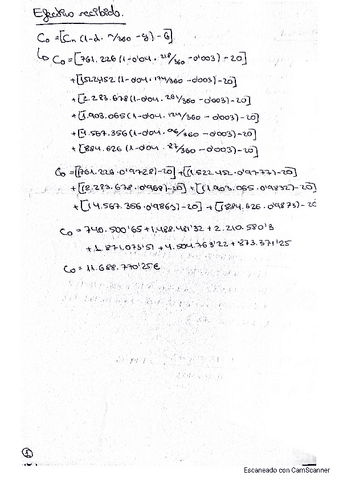 Efectivo recibido.
C₀ = [Cn (1-d · n/360 - g) - G]
↳ C₀ = [761.226 (1-0'04 · 218/360 - 0'003) - 20]
+ [1.522.452 (1-0'04 · 174/360 - 0'003) - 20]
+ [2.283.678 (1-0'04 · 261/360 - 0'003) - 20]
+ [1.903.065 (1-0'04 · 124/360 - 0'003) - 20]
+ [4.567.356 (1-0'04 · 96/360 - 0'003) - 20]
+ [884.626 (1-0'04 · 87/360 - 0'003) - 20]
C₀ = [(761.226 · 0'9728) - 20] + [(1.522.452 · 0'9777) - 20]
+ [(2.283.678 · 0'968) - 20] + [(1.903.065 · 0'9832) - 20]
+ [(4.567.356 · 0'9863) - 20] + [(884.626 · 0'9873) - 20
C₀ = 740.500'65 + 1.488.481'32 + 2.210.580'3
+ 1.871.073'51 + 4.504.763'22 + 873.371'25
C₀ = 11.688.770'25€
Escaneado con CamScanner